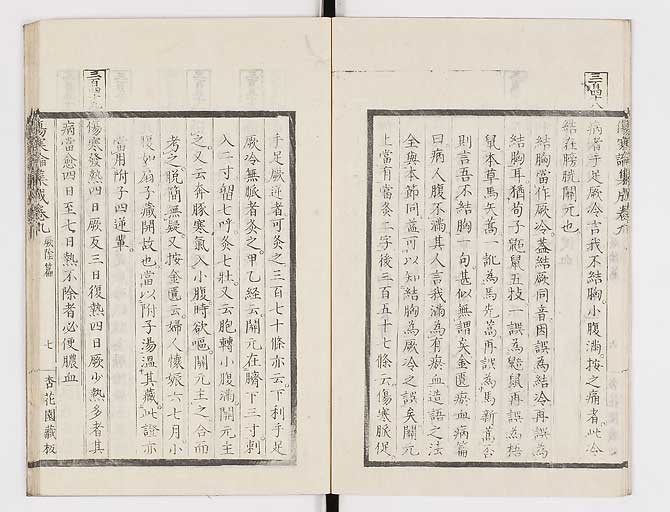 三百四十八
病者手足厥冷言我不結胸小腹滿按之痛者此冷
結在膀胱關元也
結胸當作厥冷蓋結厥同音因誤為結冷再誤為
結胸耳猶荀子鼫鼠五技一誤為鼯鼠再誤為梧
鼠本草馬矢蒿一訛為馬先蒿再誤為馬新蒿否
則言吾不結胸一句甚似無謂矣金匱瘀血病篇
曰病人腹不滿其人言我滿為有瘀血造語之法
全與本節同蓋可以知結胸為厥冷之誤矣關元
上當有當灸二字後三百五十七條云傷寒脈促
手足厥逆者可灸之三百七十條亦云下利手足
厥冷無脈者灸之甲乙經云關元在臍下三寸刺
入二寸留七呼灸七壯又云胞轉小腹滿關元主
之又云奔豚寒氣入小腹時欲嘔關元主之合而
考之脫簡無疑又按金匱云婦人懷娠六七月小
腹如扇子藏開故也當以附子湯溫其藏此證亦
當用附子四逆輩
三百四十九
傷寒發熱四日厥反三日復熱四日厥少熱多者其
病當愈四日至七日熱不除者必便膿血
傷寒論集成卷九 厥陰篇 七 杏花園藏板